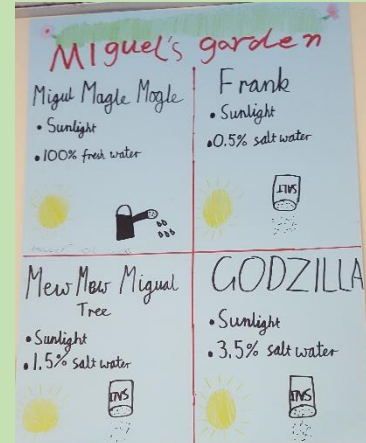 Miguel's garden
Migul Magle Mogle
• Sunlight
• 100% fresh water
Frank
• Sunlight
• 0.5% salt water
SALT
Mew Mew Migual
Tree
• Sunlight
• 1.5% salt water
SALT
GODZILLA
• Sunlight
• 3.5% salt water
SALT